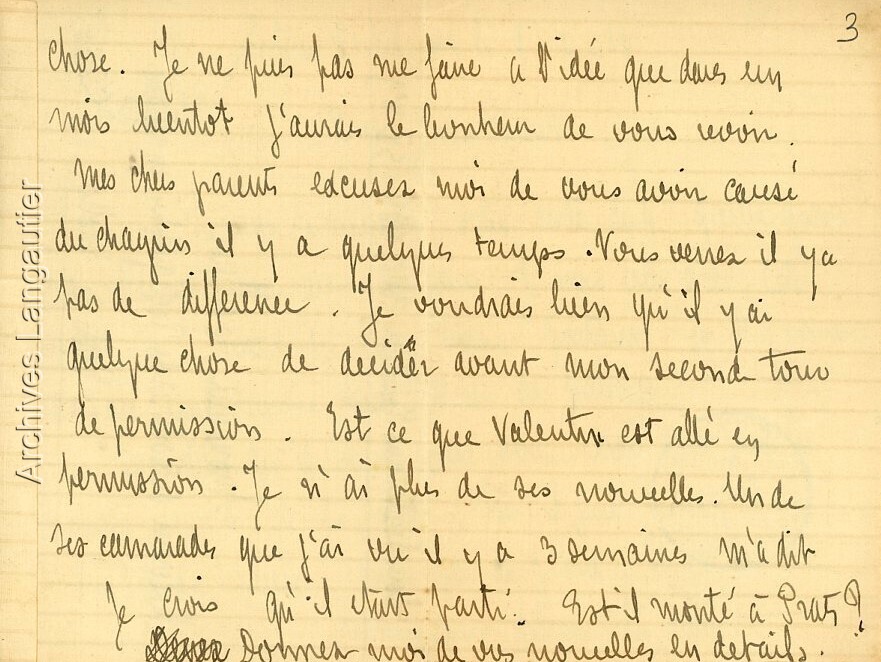 3
chose. Je ne puis pas me faire a l'idée que dans un
mois bientot j'aurais le bonheur de vous revoir.
Mes chers parents excusez moi de vous avoir causé
du chagrin il y a quelques temps. Vous verrez il y a
pas de difference. Je voudrais bien qu'il y ai
quelque chose de decider avant mon second tour
de permission. Est ce que Valentin est allé en
permission. Je n'ai plus de ses nouvelles. Un de
ses camarades que j'ai vu il y a 3 semaines m'a dit
Je crois qu'il etait parti. Est il monté à Prats?
Donnez moi de vos nouvelles en details.
Archives Langautier